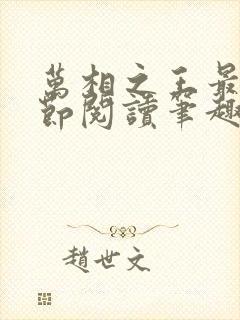 萬相之王最
節閱讀筆趣
趙世文